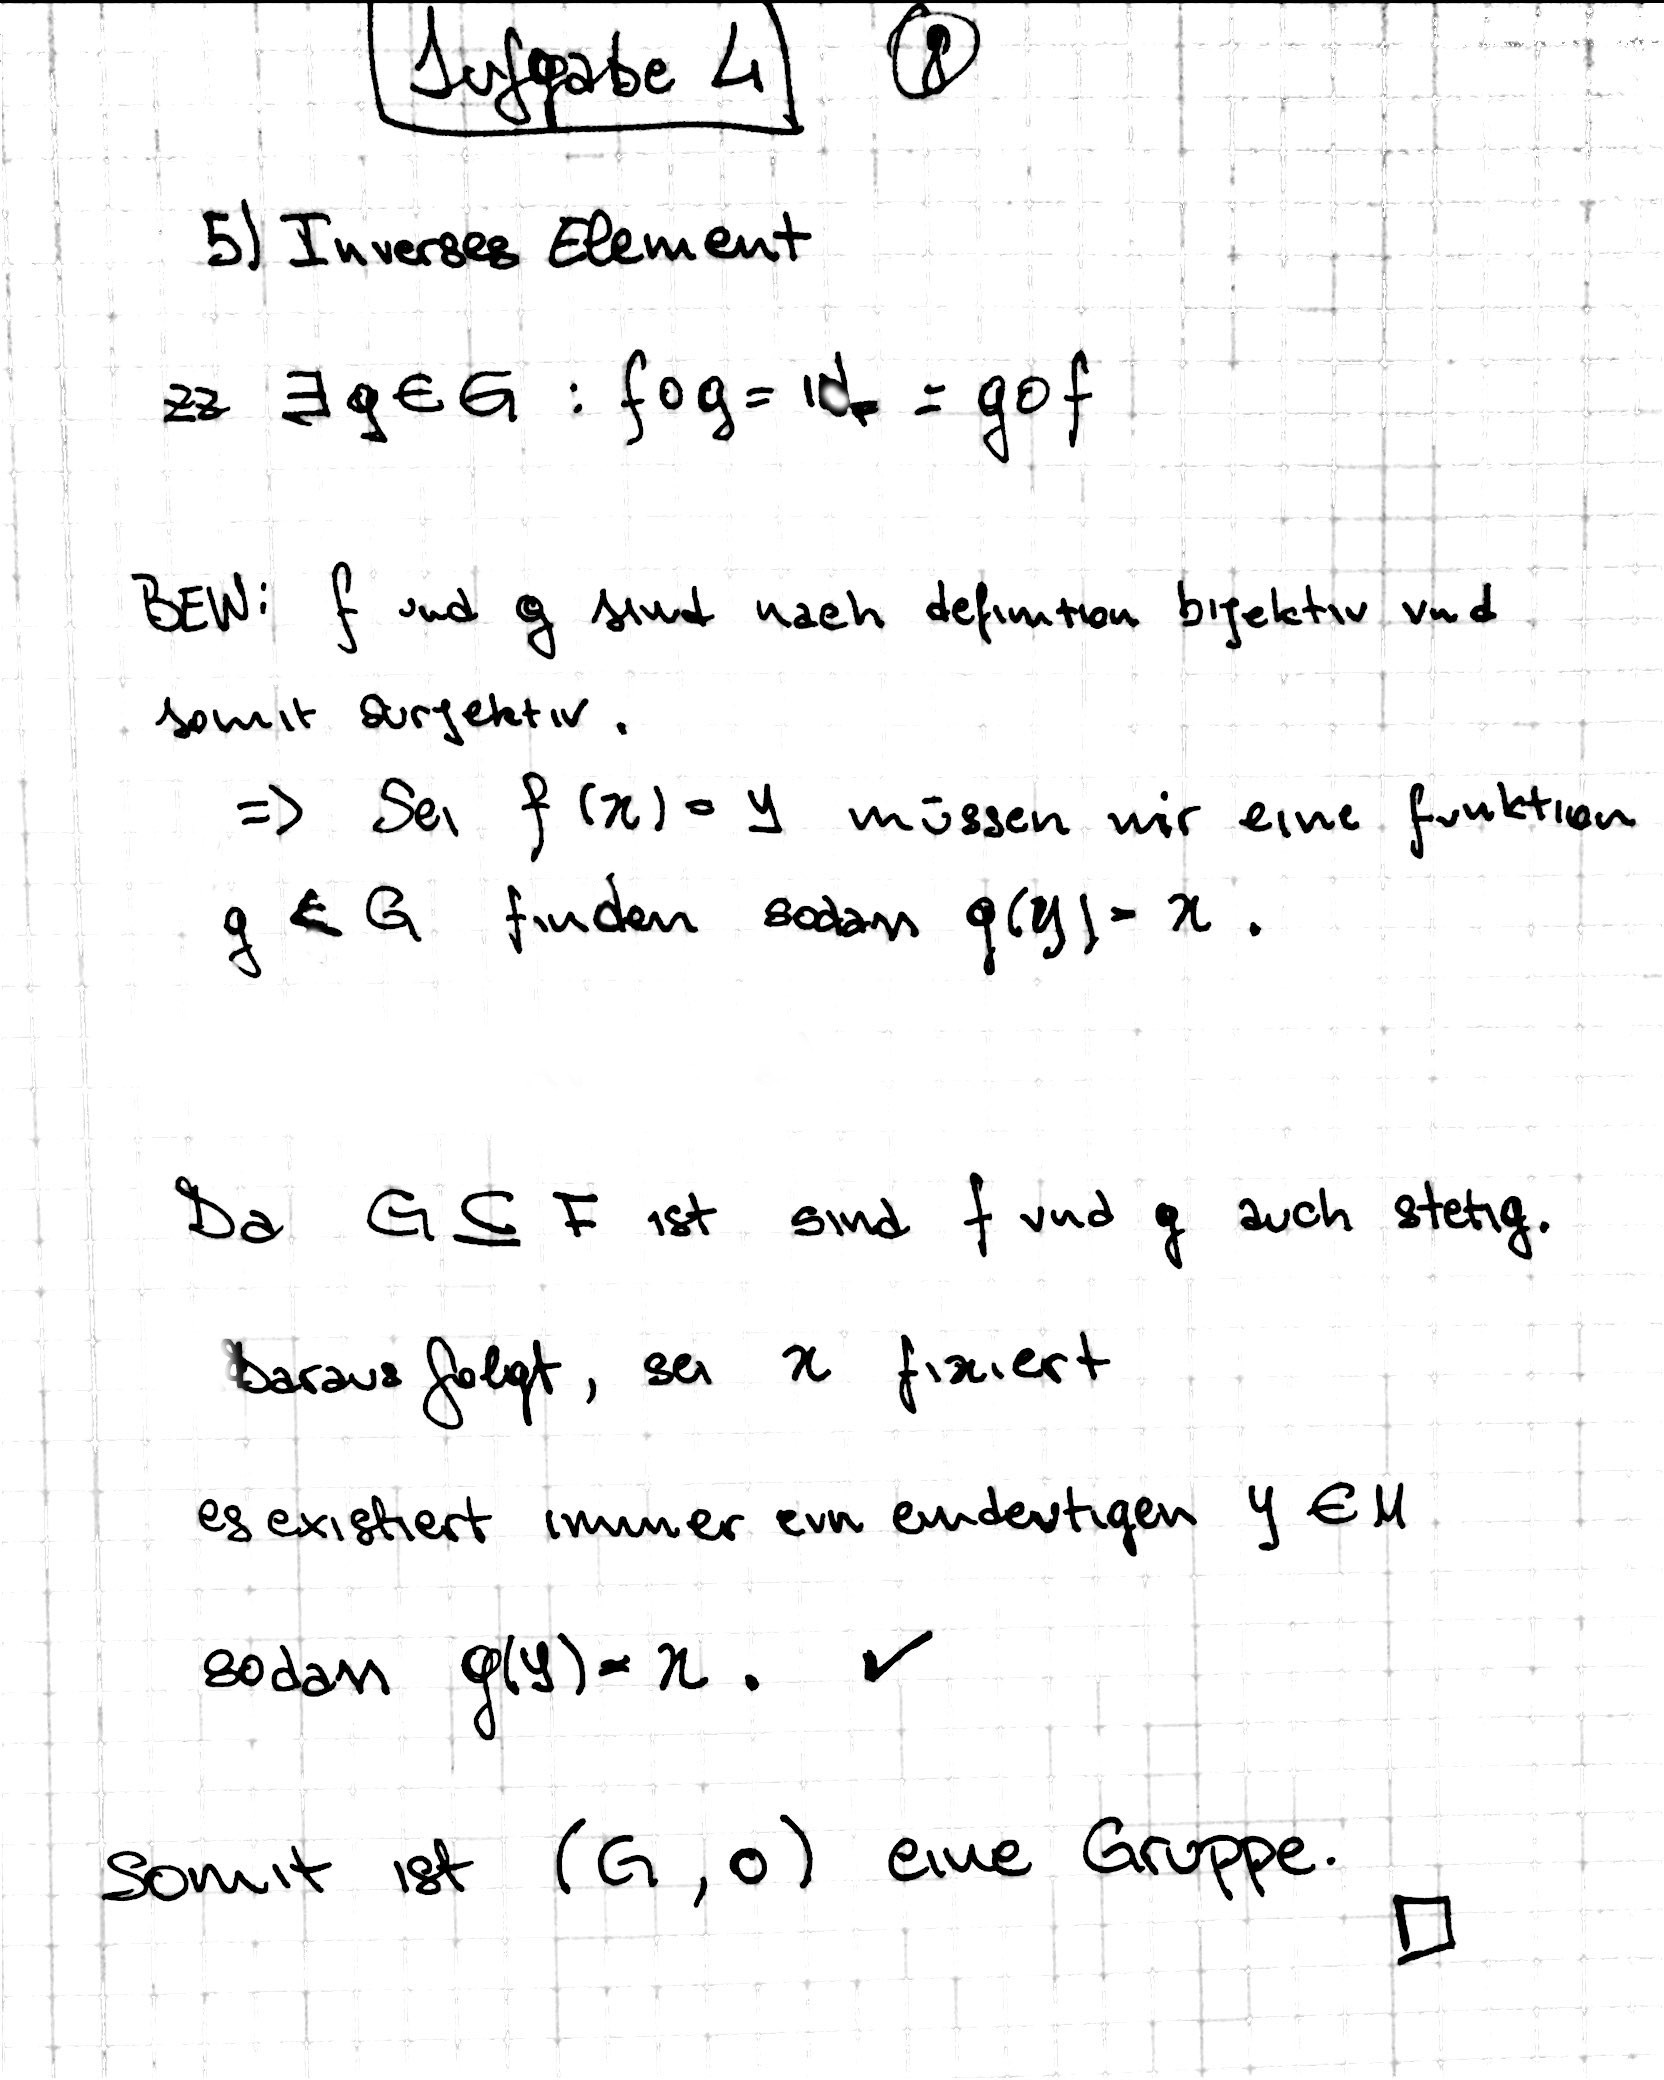 Aufgabe 4
5) Inverses Element
zz ∃ g ∈ G : f o g = id = g o f
BEW: f und g sind nach definition bijektiv und
somit surjektiv.
=> Sei f(x) = y müssen wir eine funktion
g ∈ G finden sodass g(y) = x.
Da G ⊆ F ist sind f und g auch stetig.
Daraus folgt, sei x fixiert
es existiert immer ein eindeutigen y ∈ M
sodass g(y) = x. ✓
Somit ist (G, o) eine Gruppe.
□